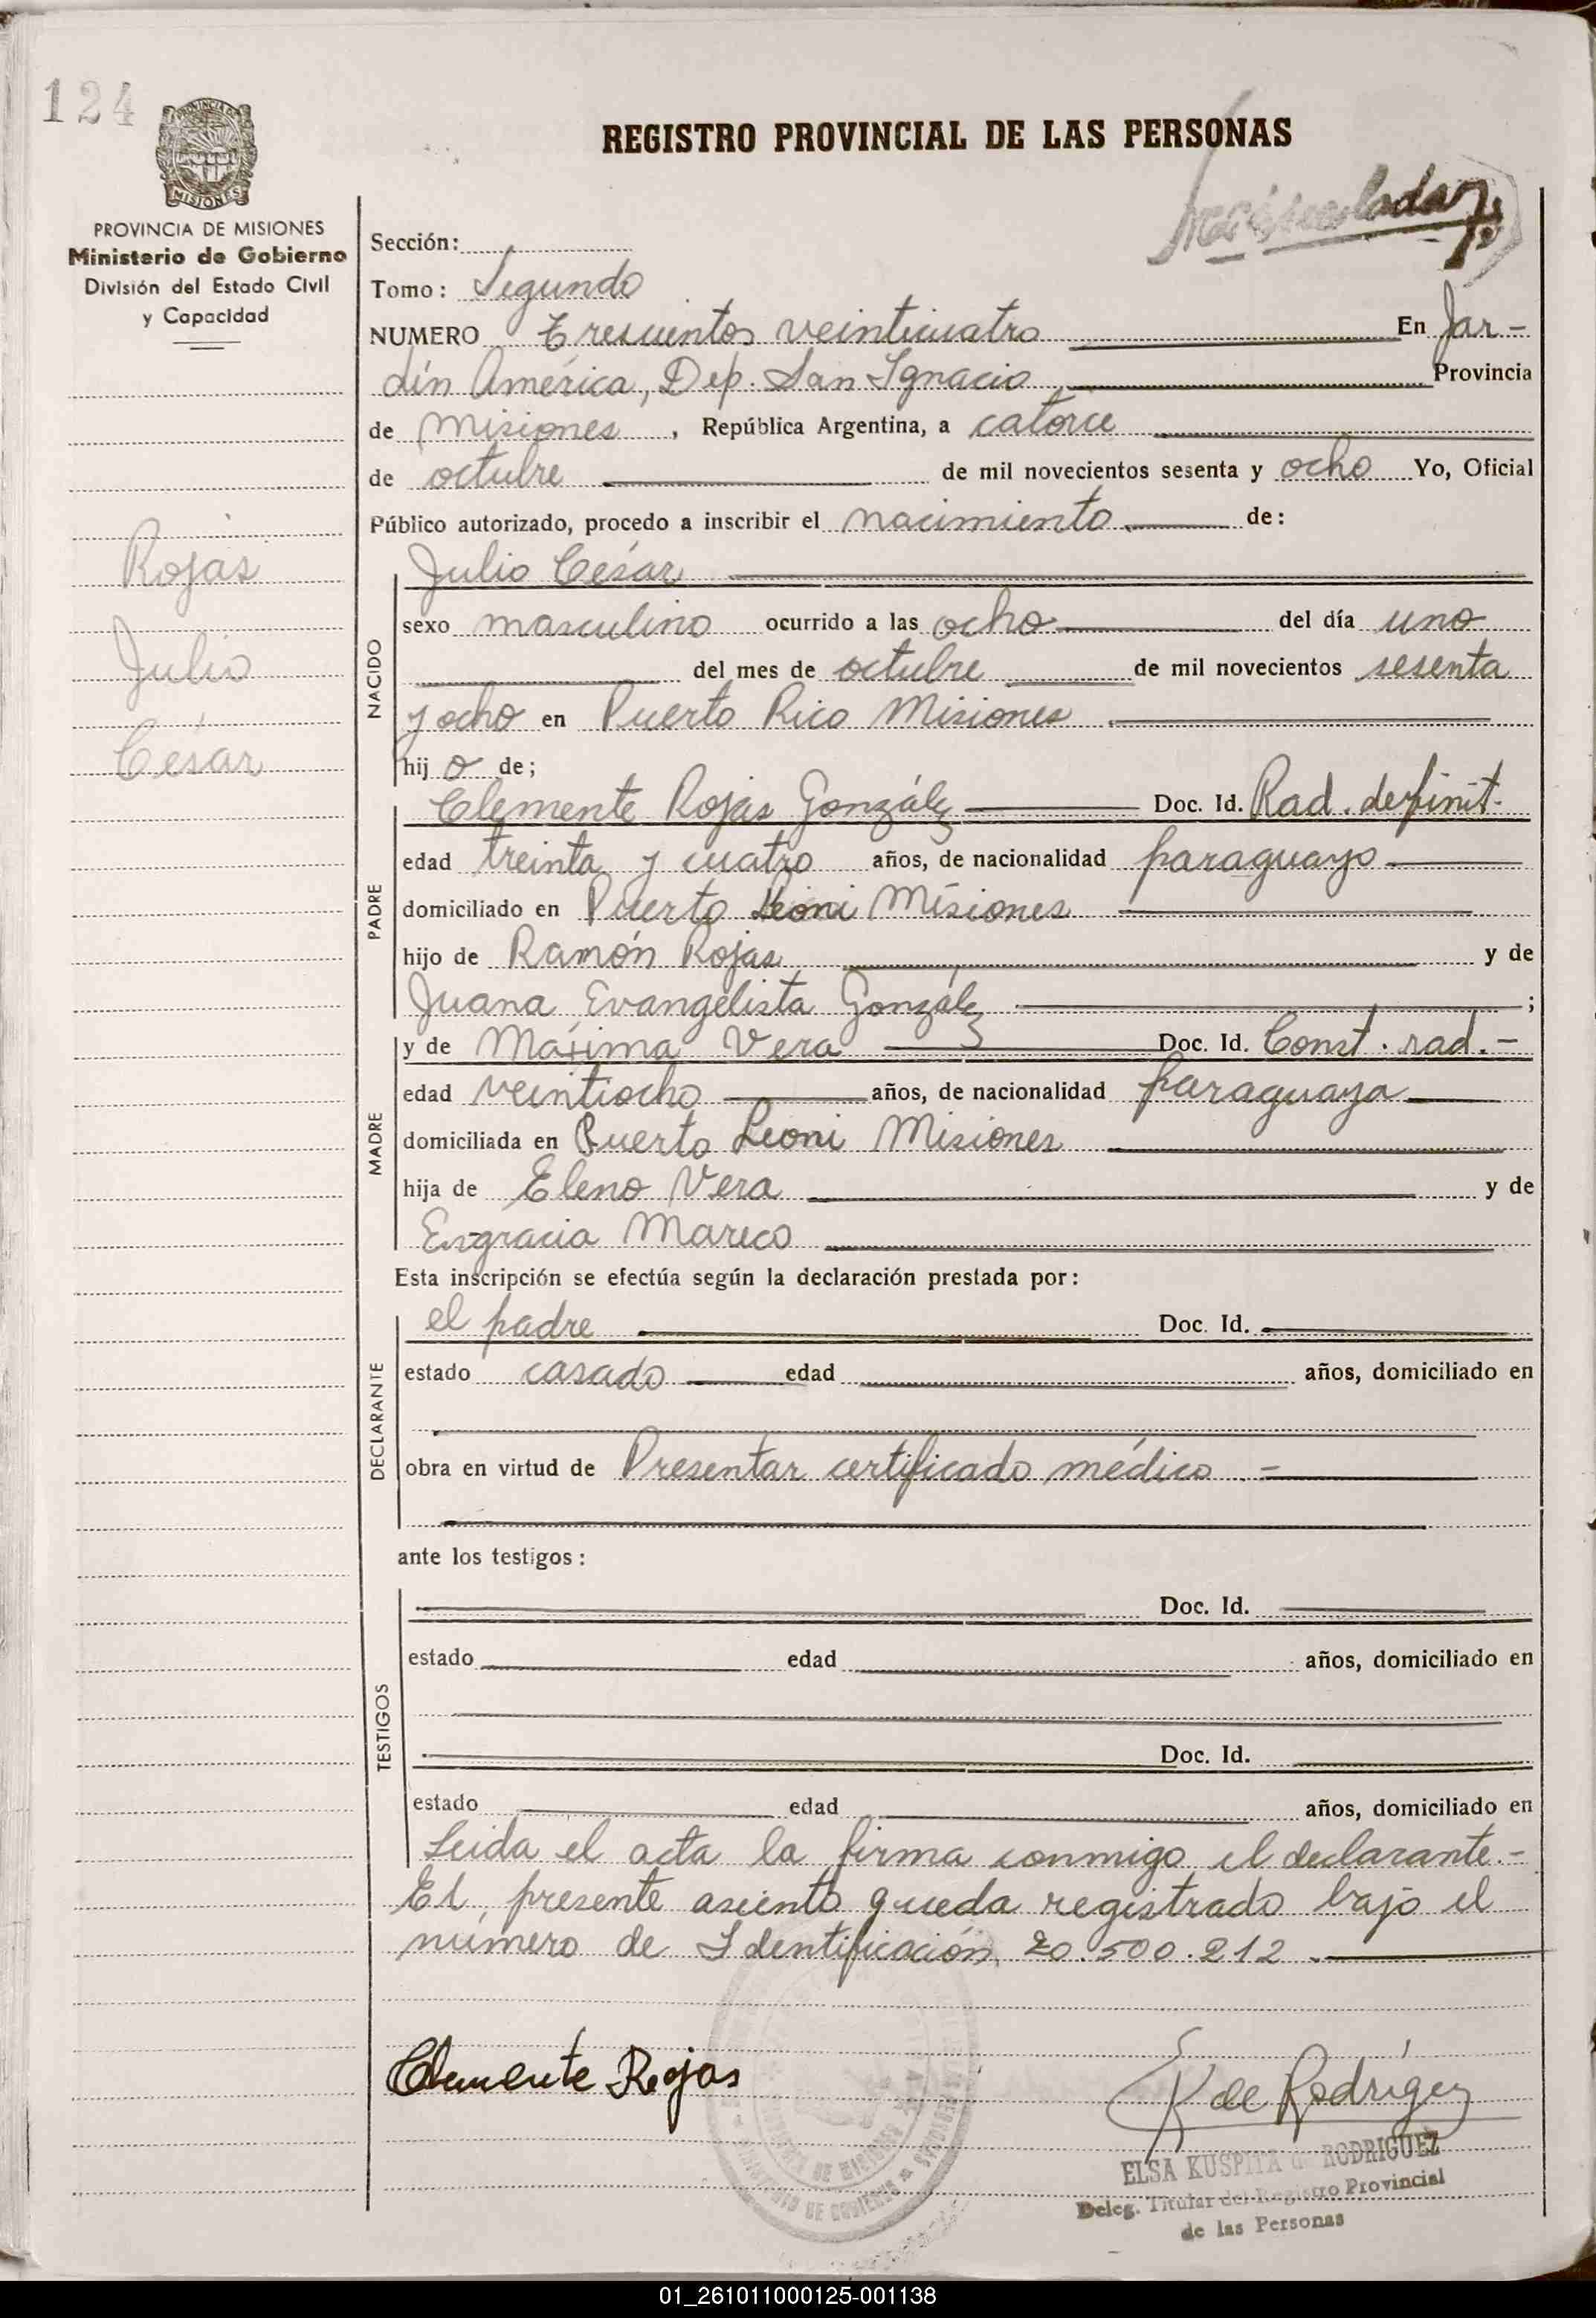 124
PROVINCIA DE MISIONES
Ministerio de Gobierno
División del Estado Civil
y Capacidad
REGISTRO PROVINCIAL DE LAS PERSONAS
Sección:
Tomo: Segundo
NUMERO Trescientos veinticuatro En Jar-
dín América, Dep. San Ignacio Provincia
de Misiones, República Argentina, a catorce
de octubre de mil novecientos sesenta y ocho Yo, Oficial
Público autorizado, procedo a inscribir el nacimiento de:
Rojas
Julio
César
NACIDO
Julio César
sexo masculino ocurrido a las ocho del día uno
del mes de octubre de mil novecientos sesenta
y ocho en Puerto Rico Misiones
hijo de;
PADRE
Clemente Rojas González Doc. Id. Rad. definit.
edad treinta y cuatro años, de nacionalidad paraguayo
domiciliado en Puerto Leoni Misiones
hijo de Ramón Rojas y de
Juana Evangelista González ;
MADRE
y de Máxima Vera Doc. Id. Const. rad.-
edad veintiocho años, de nacionalidad paraguaya
domiciliada en Puerto Leoni Misiones
hija de Eleno Vera y de
Engracia Mareco
Esta inscripción se efectúa según la declaración prestada por:
DECLARANTE
el padre Doc. Id.
estado casado edad años, domiciliado en
obra en virtud de Presentar certificado médico.-
ante los testigos:
TESTIGOS
Doc. Id.
estado edad años, domiciliado en
Doc. Id.
estado edad años, domiciliado en
Leida el acta la firma conmigo el declarante.-
El presente asiento queda registrado bajo el
número de Identificación 20.500.212.
Clemente Rojas
K de Rodríguez
ELSA KUSPITA de RODRIGUEZ
Deleg. Titular del Registro Provincial
de las Personas
01_261011000125-001138